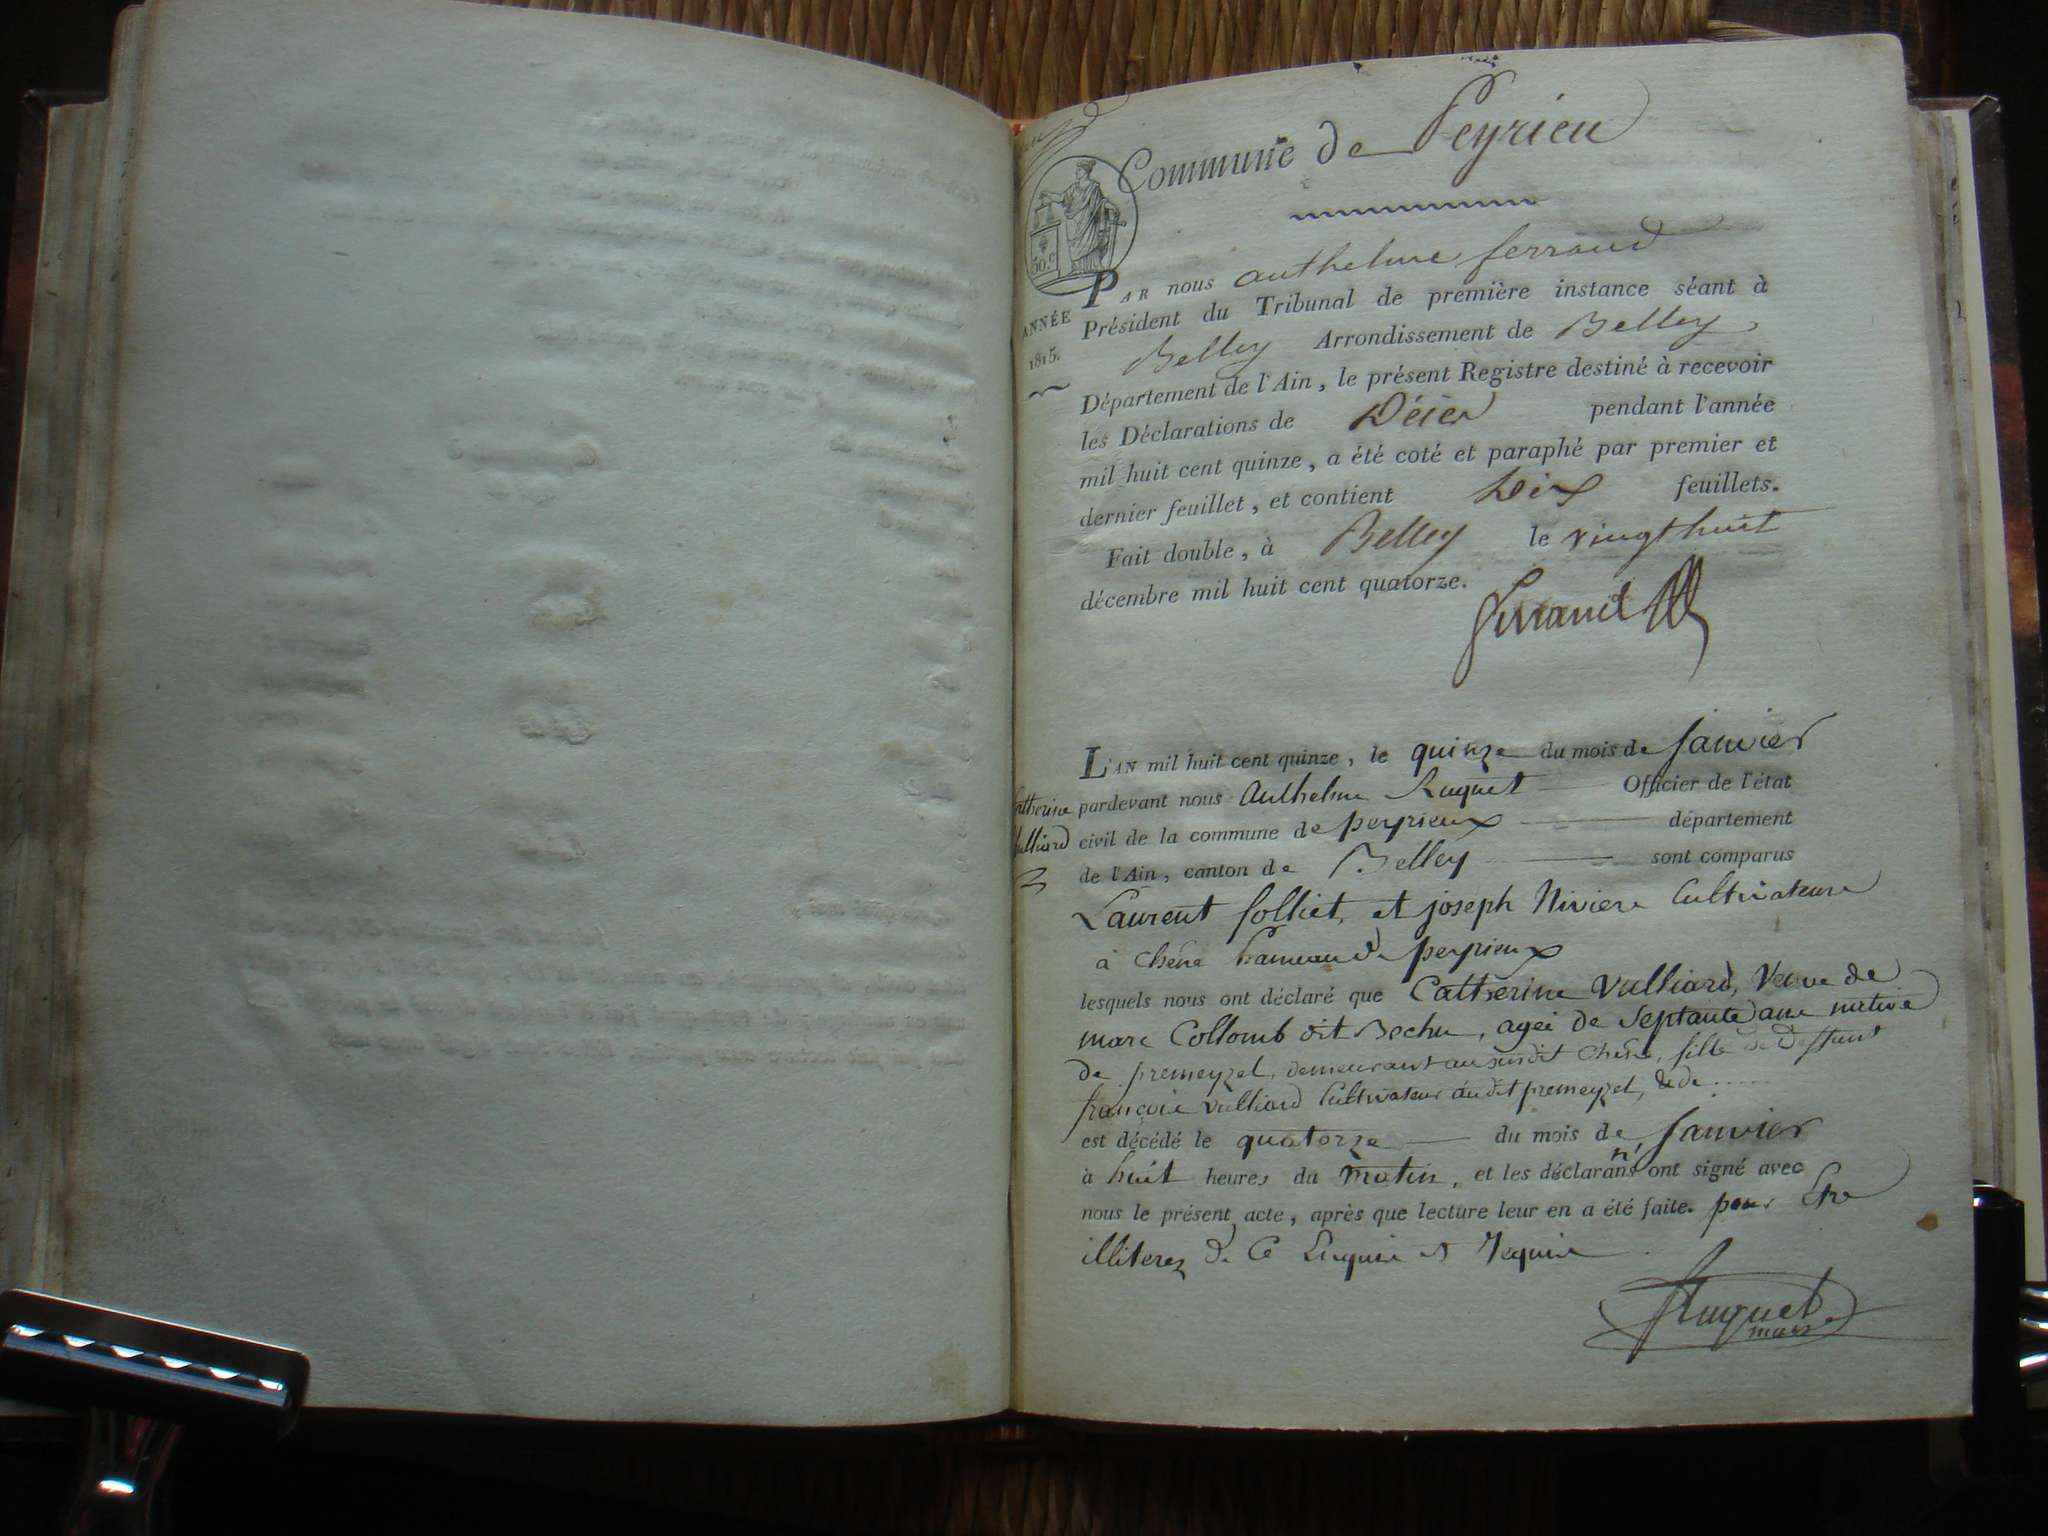 Commune de Peyrieu
50.c
ANNÉE
1815.
PAR nous anthelme ferrand
Président du Tribunal de première instance séant à
Belley Arrondissement de Belley
Département de l'Ain, le présent Registre destiné à recevoir
les Déclarations de Décès pendant l'année
mil huit cent quinze, a été coté et paraphé par premier et
dernier feuillet, et contient Dix feuillets.
Fait double, à Belley le vingt huit
décembre mil huit cent quatorze.
ferrand
Catherine
Vulliard
L'AN mil huit cent quinze, le quinze du mois de Janvier
pardevant nous Anthelme Ruquet Officier de l'état
civil de la commune de peyrieux département
de l'Ain, canton de Belley sont comparus
Laurent folliet, et joseph Niviere Cultivateurs
à chêne hameau de peyrieux
lesquels nous ont déclaré que Catherine Vulliard, Veuve de
marc Collomb dit Bochu, agée de Septante ans native
de premeyzel, demeurant au susdit Chêne, fille de Deffunt
françois Vulliard Cultivateur audit premeyzel, & de .....
est décédé le quatorze du mois de Janvier
à huit heures du matin, et les déclarans n' ont signé avec
nous le présent acte, après que lecture leur en a été faite. pour Etre
illiterez de Ce Enquis et Requis
Ruquet
maire